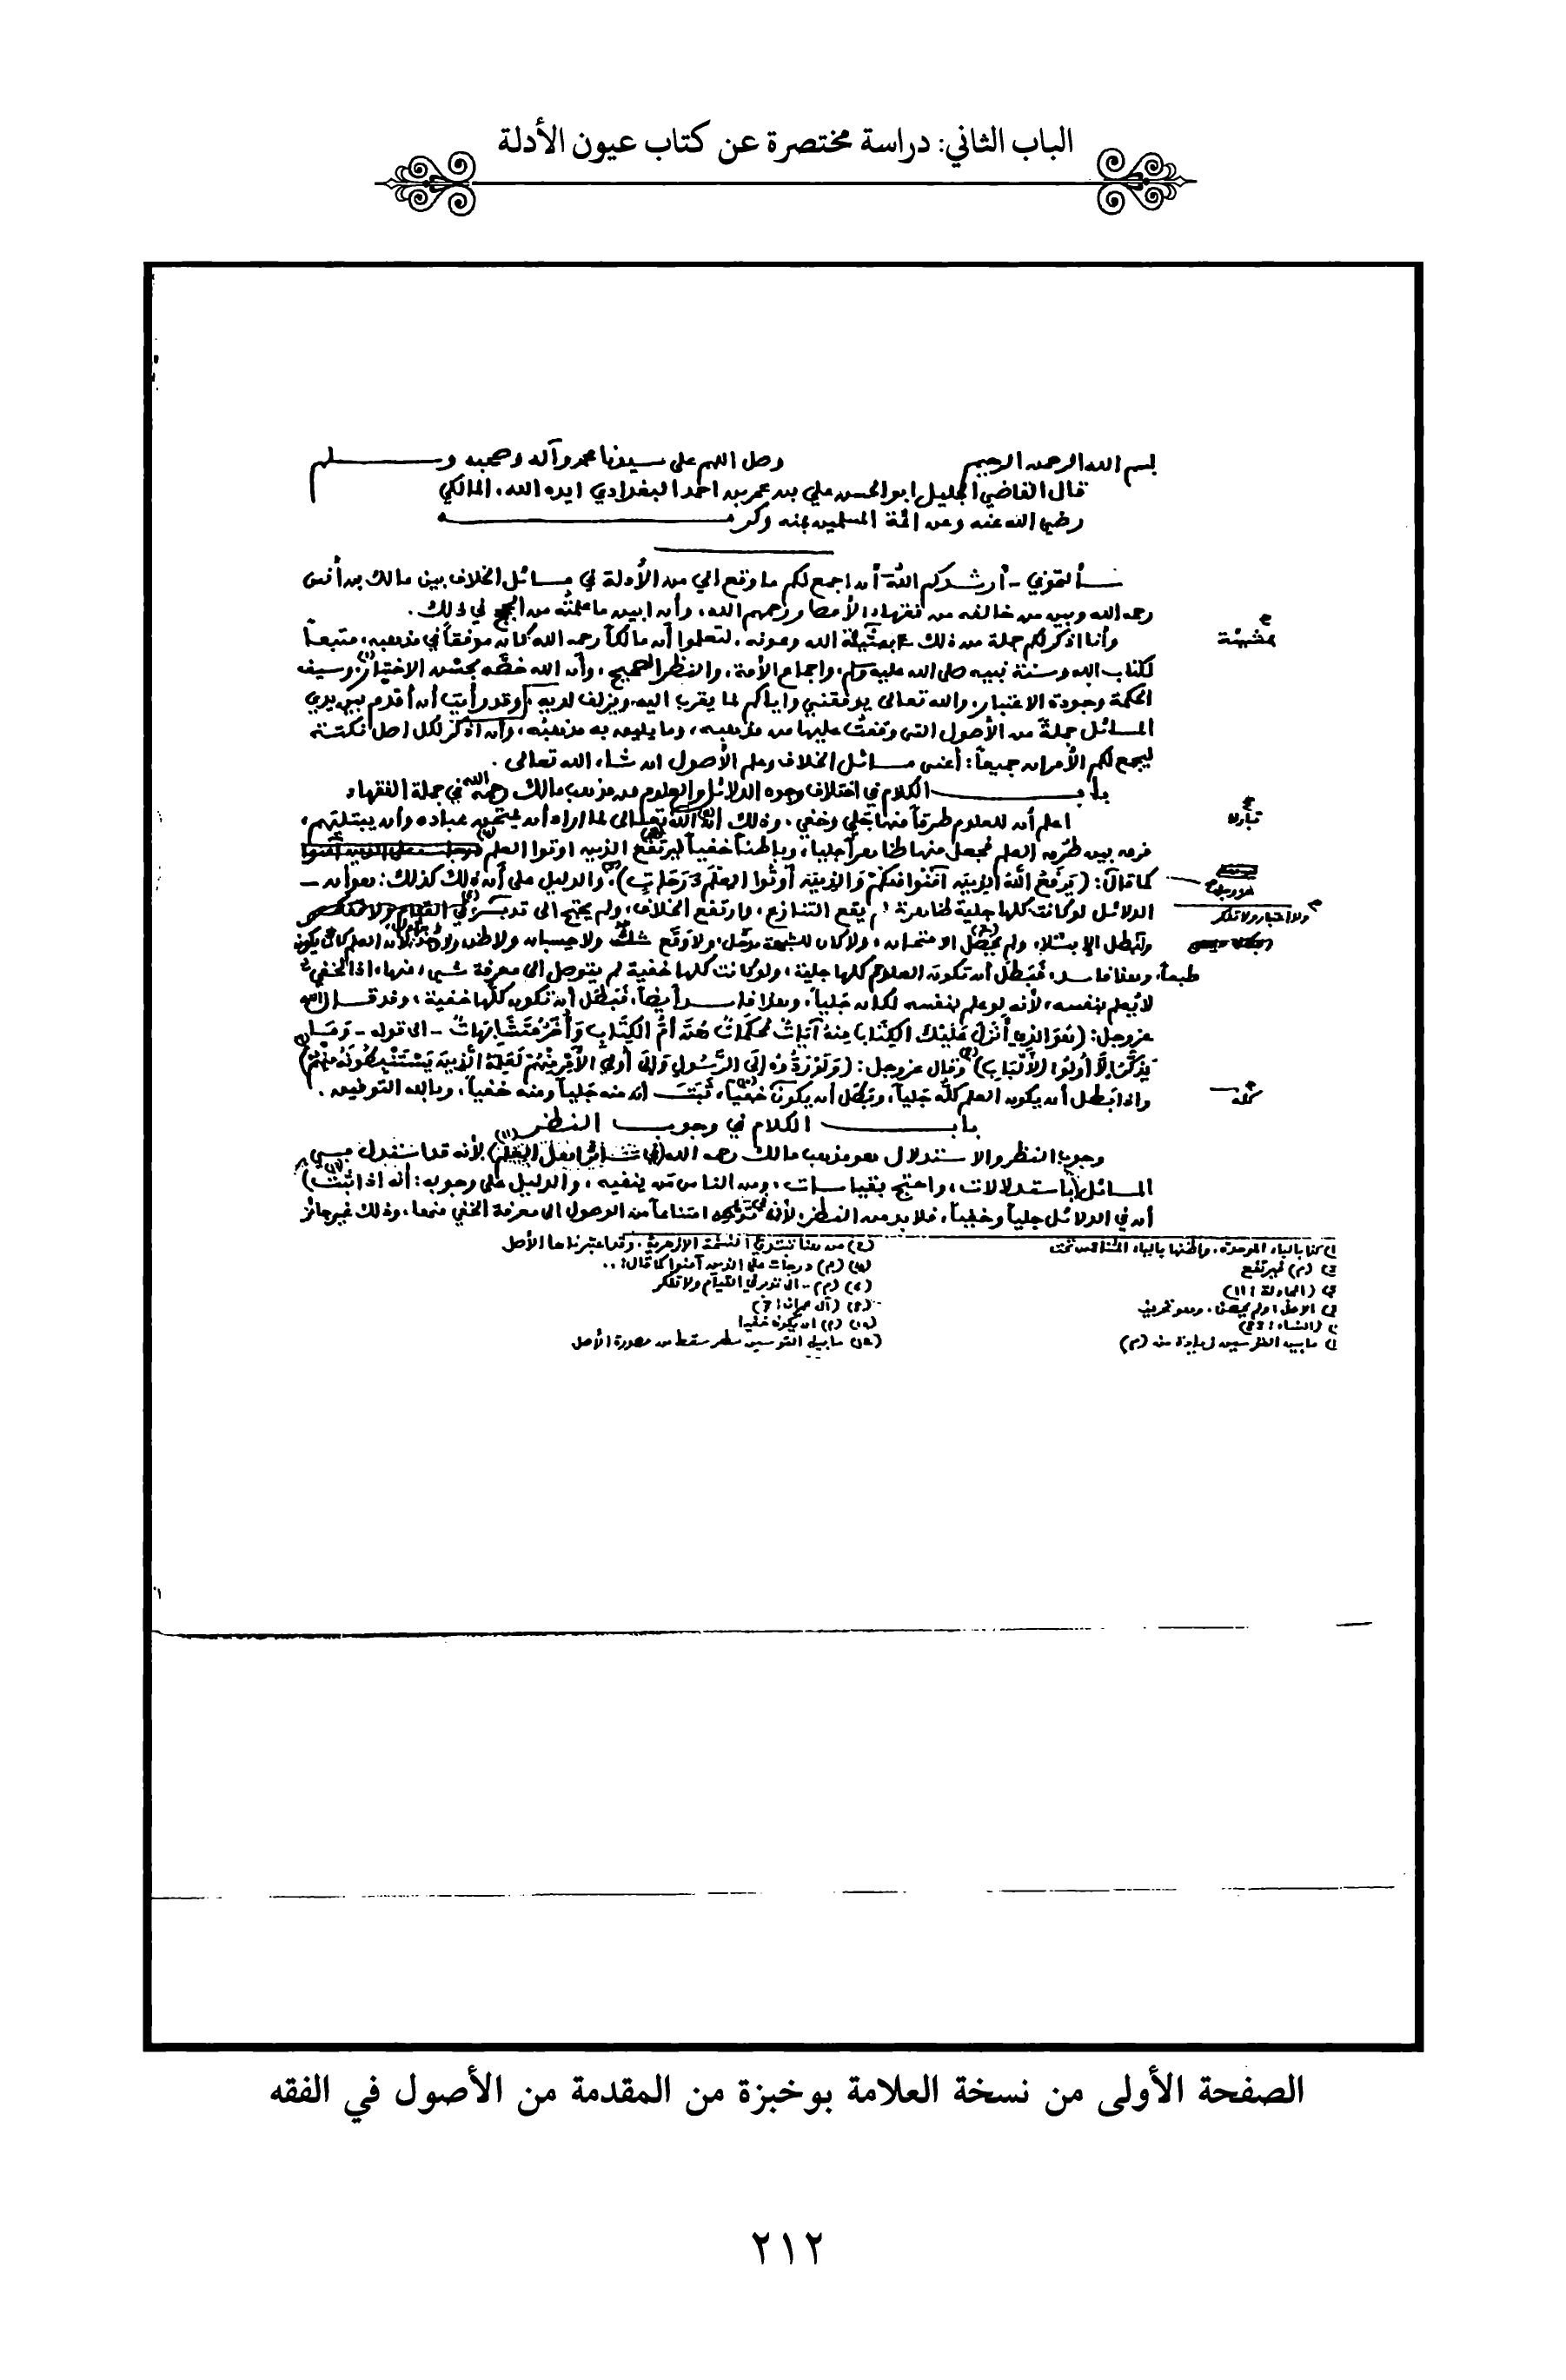 الباب الثاني: دراسة مختصرة عن كتاب عيون الأدلة
بسم الله الرحمن الرحيم وصل اللهم على سيدنا محمد وآله وصحبه وسلم
قال القاضي الجليل ابو الحسن علي بن عمر بن احمد البغدادي ايده الله، المالكي
رضي الله عنه وعن ائمة المسلمين بمنه وكرمه
سألتموني - أرشدكم الله - أن اجمع لكم ما وقع الي من الأدلة في مسائل الخلاف بين مالك بن أنس
رحمه الله وبين من خالفه من فقهاء الأمصار رحمهم الله، وأن ابين ما علمته من الحجج في ذلك.
وأنا اذكر لكم جملة من ذلك بمشيئة الله وعونه، لتعلموا أن مالكاً رحمه الله كان موفقاً في مذهبه، متبعاً
مشيئة
لكتاب الله وسنة نبيه صلى الله عليه وسلم، واجماع الأمة، والنظر الصحيح، وأن الله خصّه بحسن الاختيار (١)، وسيف
الحكمة وجودة الاعتبار، والله تعالى يوفقني واياكم لما يقرب اليه، ويزلف لديه، وقد رأيت أن أقدم بين يدي
المسائل جملةً من الأصول التي وقفتُ عليها من مذهبه، وما يليق به مذهبُه، وأن اذكر لكل اصل نكتة
ليجمع لكم الأمران جميعاً: أعني مسائل الخلاف وعلم الأصول ان شاء الله تعالى.
باب الكلام في اختلاف وجوه الدلائل والعلوم من مذهب مالك رحمه الله في جملة الفقهاء
اعلم أن للعلوم طرقاً منها جلي وخفي، وذلك ان الله تعالى لما اراد أن يمتحن عباده وأن يبتليهم،
فرق بين طرق العلم فجعل منها ظاهراً جلياً، وباطناً خفياً ليرتفع الذين اوتوا العلم
كما قال: (يَرفَعِ اللهُ الذِينَ آمَنُوا مِنكُمْ وَالذِينَ أُوتُوا العِلْمَ دَرَجَاتٍ)، والدليل على أن ذلك كذلك: هو أن
الدلائل لو كانت كلها جلية ظاهرة لم يقع التنازع، وارتفع الخلاف، ولم يحتج الى تدبر
ولا اعتبار ولا تفكر
ولبطل الابتلاء ولم يحصل الامتحان، ولا كان للشبهة مدخل، ولا وقع شك ولا حسبان ولا ظن، لأن العلم كان يكون
طبعاً، وهذا فاسد، فبَطَل أن تكون العلوم كلها جلية، ولو كانت كلها خفية لم يتوصل الى معرفة شيء منها، اذ الخفي
لا يُعلم بنفسه، لأنه لو علم بنفسه لكان جلياً، وهذا فاسد أيضاً، فبَطَل أن تكون كلها خفية، وقد قال الله
عز وجل: (هُوَ الذِي أَنزَلَ عَلَيْكَ الكِتَابَ مِنهُ آيَاتٌ مُحكَمَاتٌ هُنَّ أُمُّ الكِتَابِ وَأُخَرُ مُتَشَابِهَاتٌ - الى قوله - وَمَا
يَذَّكَّرُ إِلاَّ أُولُوا الأَلْبَابِ) وقال عز وجل: (وَلَوْ رَدُّوهُ إِلَى الرَّسُولِ وَإِلَى أُولِي الأَمْرِ مِنْهُمْ لَعَلِمَهُ الذِينَ يَسْتَنْبِطُونَهُ مِنْهُمْ)
واذا بَطَل أن يكون العلم كلُّه جلياً، وبَطَل أن يكون خفياً، ثَبَتَ أن منه جلياً ومنه خفياً، وبالله التوفيق.
كله
باب الكلام في وجوب النظر
وجوب النظر والاستدلال هو مذهب مالك رحمه الله لأنه قد استدل في
المسائل باستدلالات، واحتج بقياسات، ومن الناس مَن ينفيه، والدليل على وجوبه: أنه اذا ثبت
أن في الدلائل جلياً وخفياً، فلا بد من النظر، لأن في تركه امتناعاً من الوصول الى معرفة الخفي منها، وذلك غير جائز
(م) فيرتفع
(المجادلة: 11)
ما بين القوسين زيادة من (م)
من هنا تبتدئ النسخة الازهرية، وقد اعتبرناها الأصل
(م) ان يكون خفيا
ما بين القوسين سطر سقط من مصورة الأصل
الصفحة الأولى من نسخة العلامة بوخبزة من المقدمة من الأصول في الفقه
٢١٢